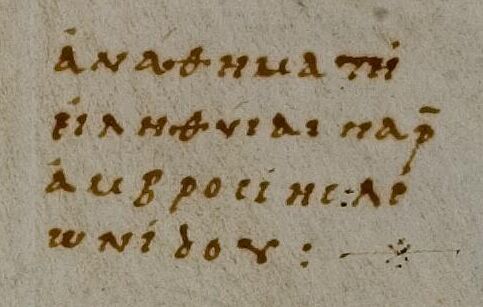 ἀναθημα τῆ
εἰληθυιαι παρ̄
ἀμβροσίης: λε
ωνίδου: